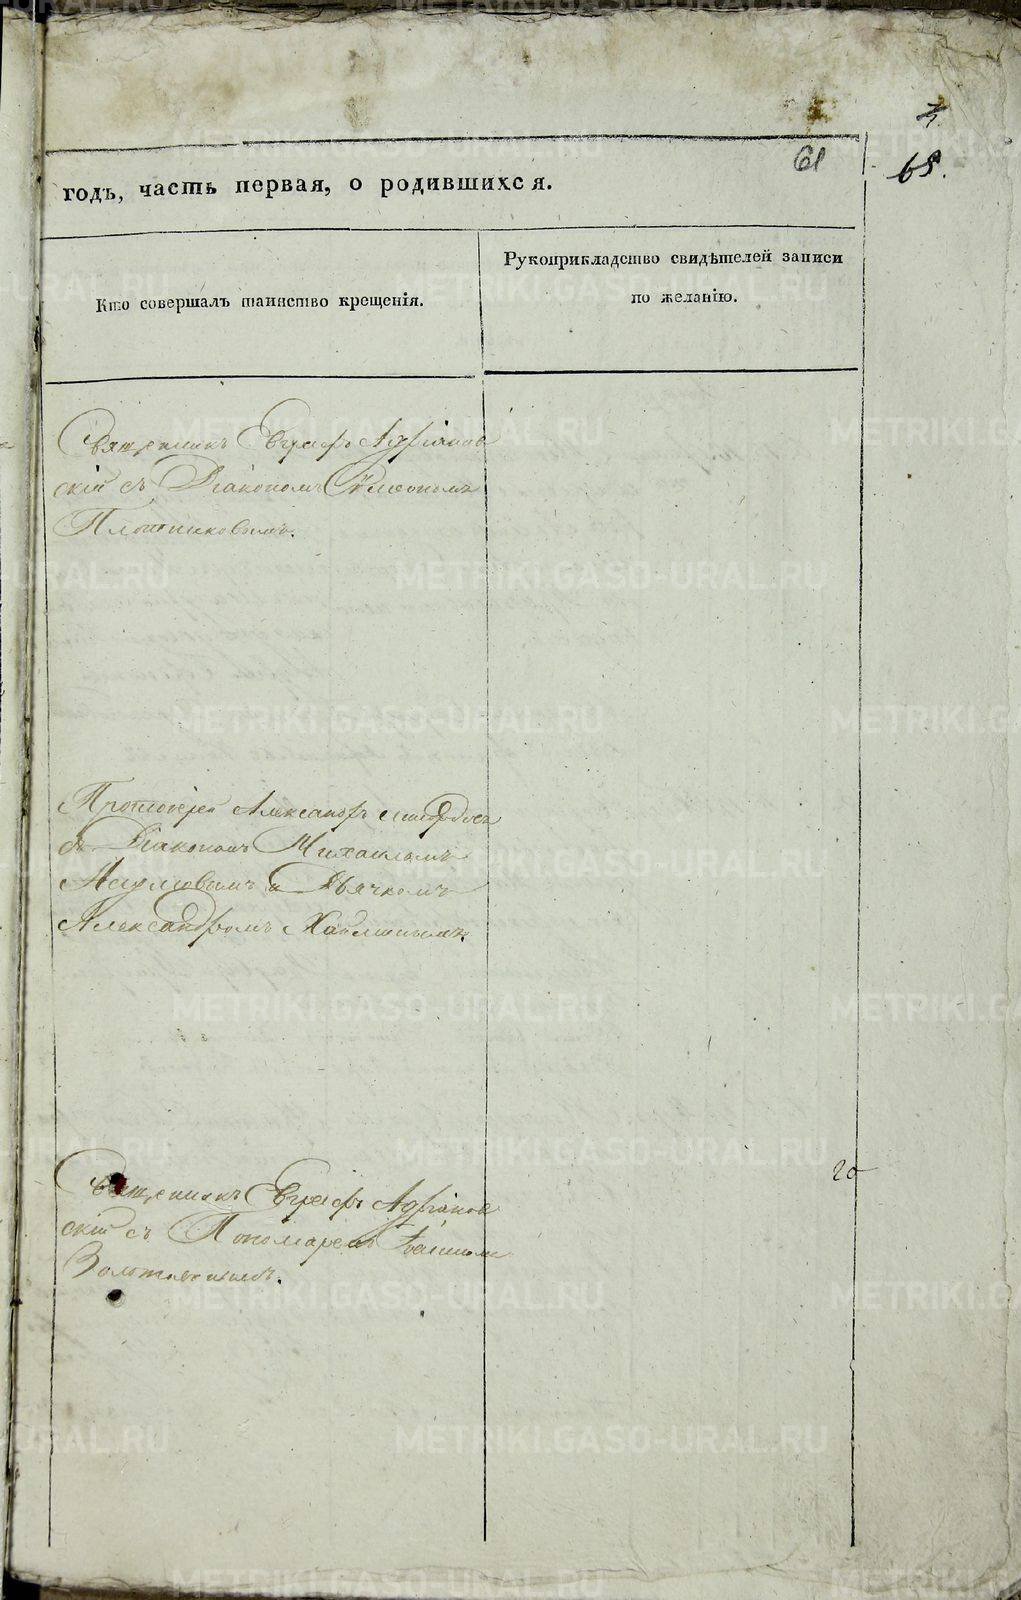 61
65.
годъ, часть первая, о родившихся.
Кто совершалъ таинство крещенія.
Рукоприкладство свидѣтелей записи
по желанію.
Священникъ Евграфъ Адріанов
скій съ Діакономъ Симеономъ
Плотниковымъ.
Протоіерей Александръ
съ Діакономъ Михаиломъ
и Дьячкомъ
Александромъ
20
Священникъ Евграфъ Адріанов
скій съ Пономаремъ Іоанномъ
METRIKI.GASO-URAL.RU